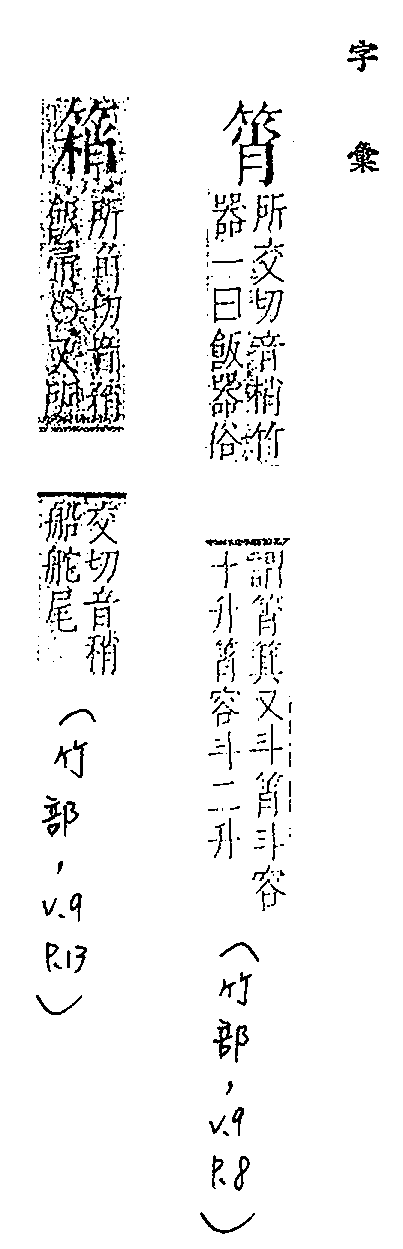 字彙
筲
所交切音梢竹
器一曰飯器俗
謂筲箕又斗筲斗容
十升筲容斗二升
(竹部,v.9 P.8)
䈰
所角切音稍
飯帚 又所
交切音稍
船舵尾
(竹部,v.9 P.13)